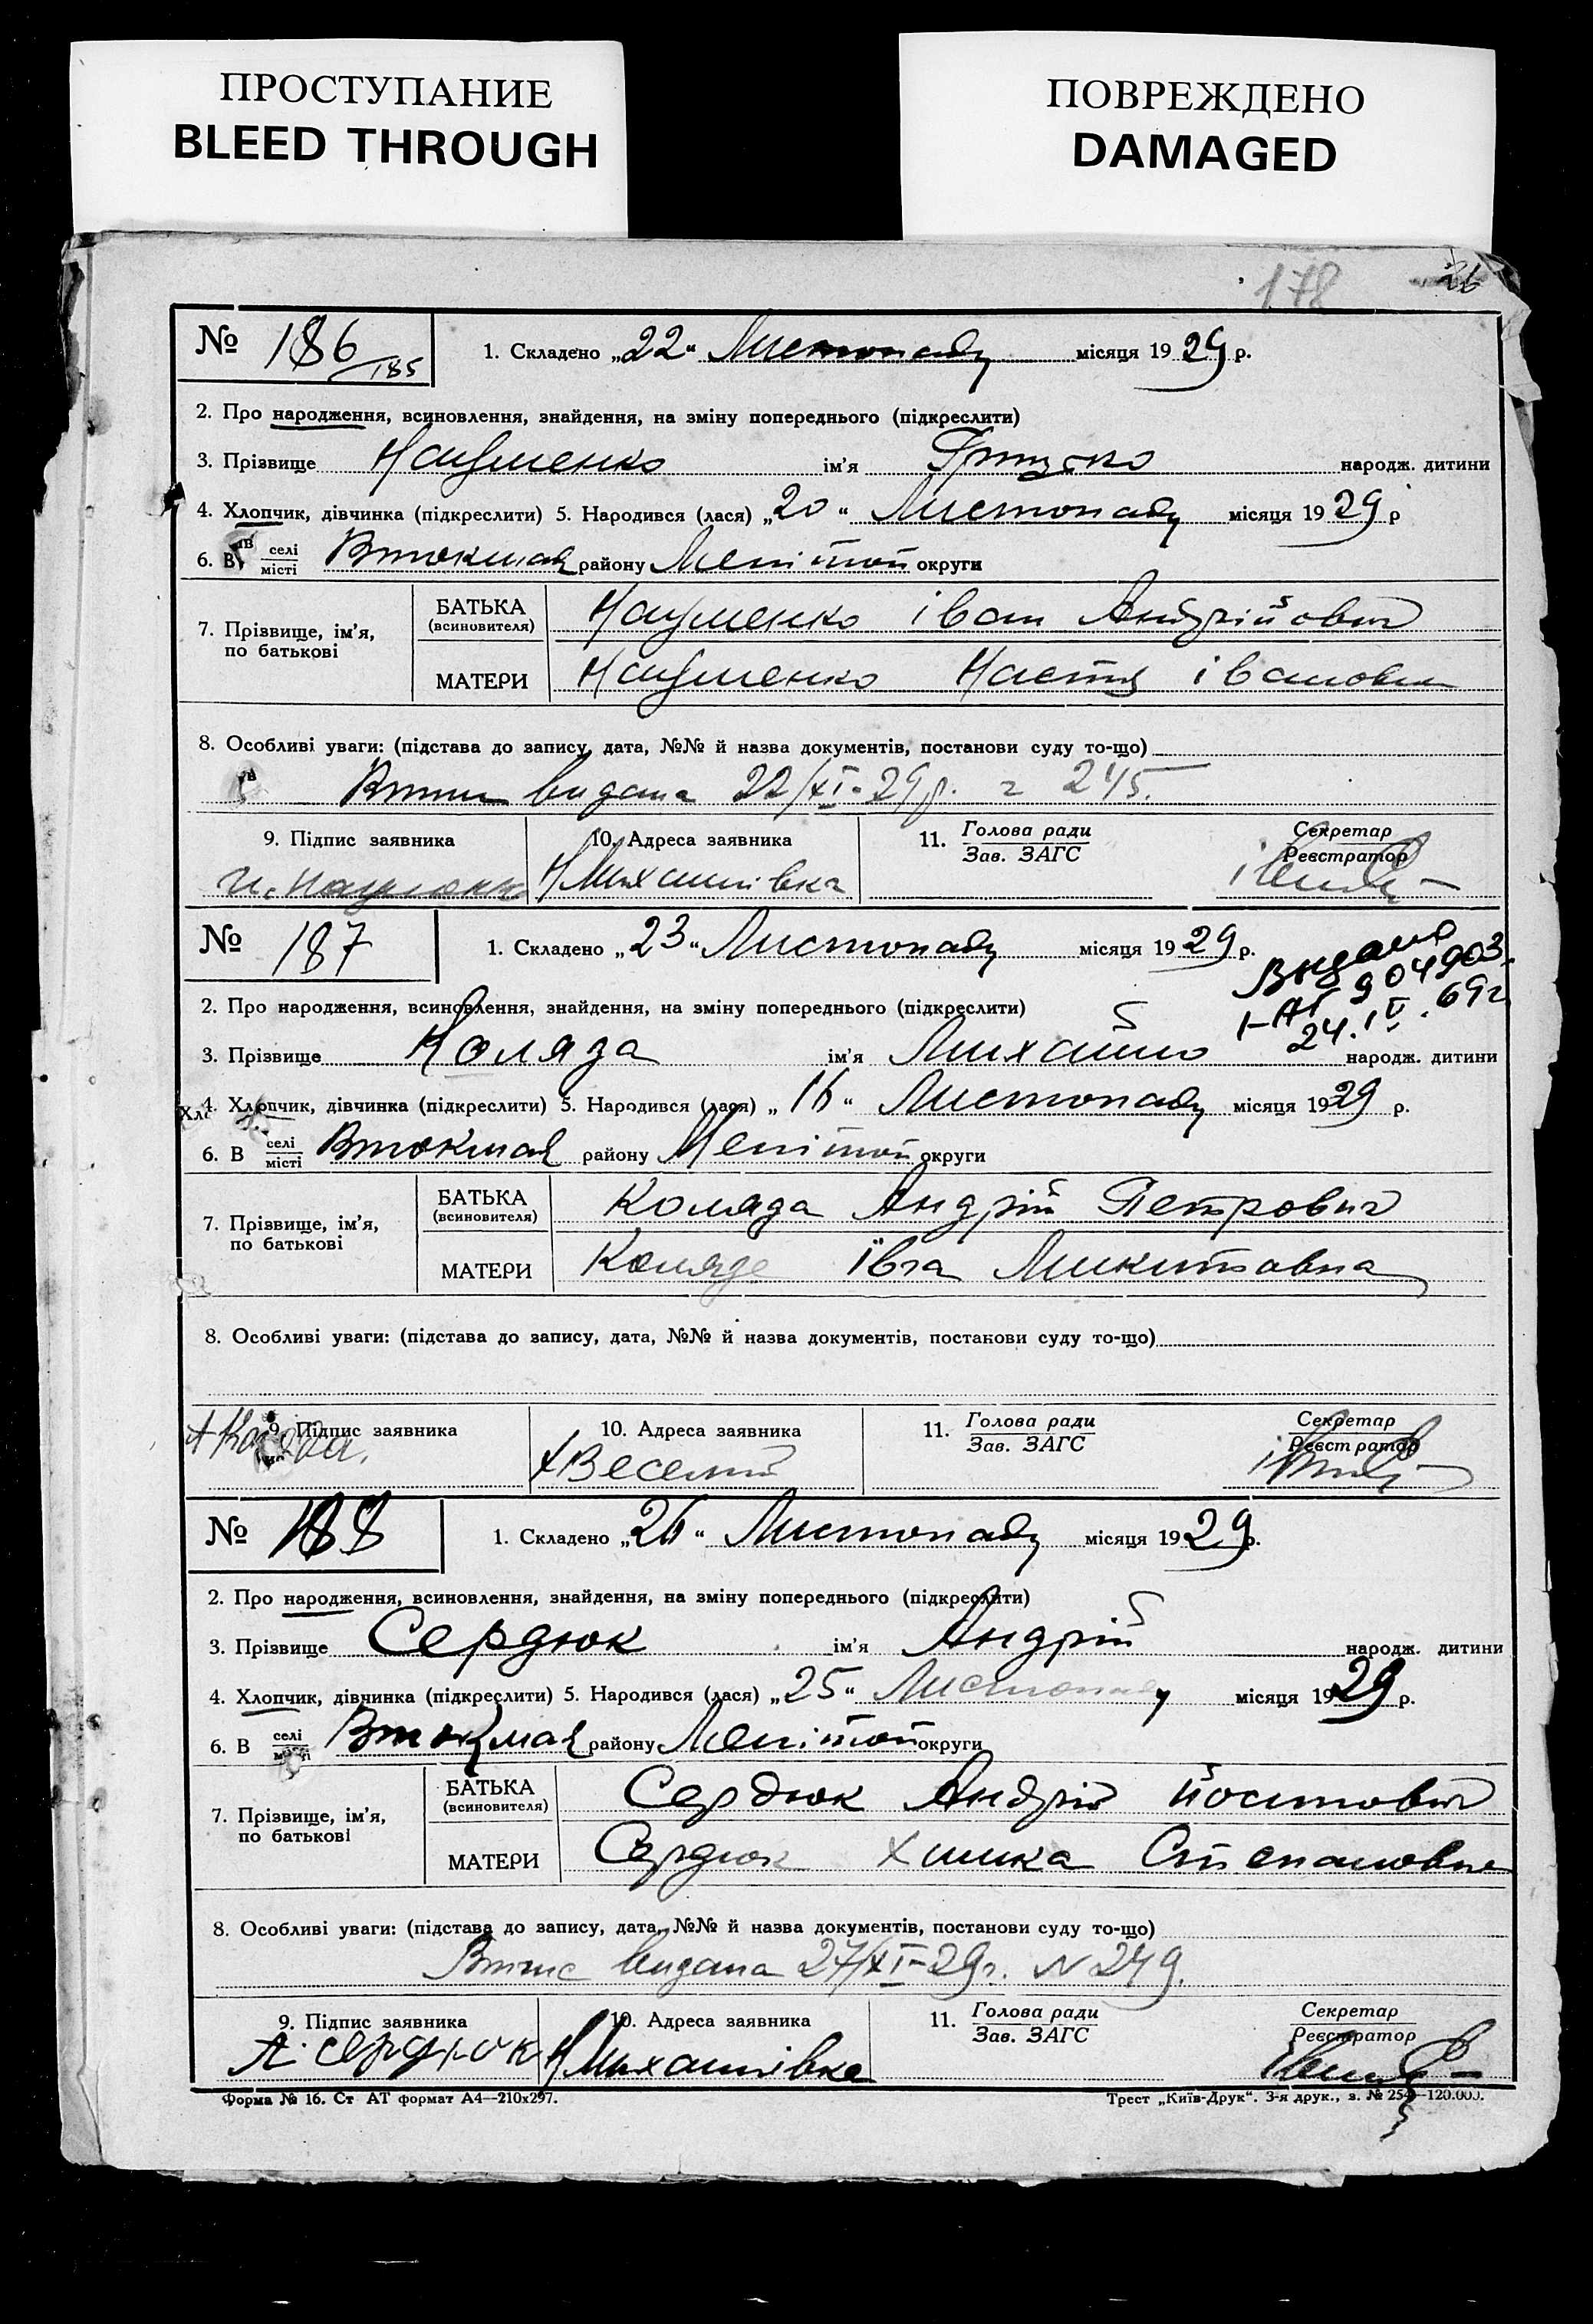 ПРОСТУПАНИЕ
BLEED THROUGH
ПОВРЕЖДЕНО
DAMAGED
178
26
№ 186/185
1. Складено „22“ Листопаду місяця 1929 р.
2. Про народження, всиновлення, знайдення, на зміну попереднього (підкреслити)
3. Прізвище Науменко ім'я Грицько народж. дитини
4. Хлопчик, дівчинка (підкреслити) 5. Народився (лася) „20“ Листопаду місяця 1929 р
6. В селі/місті Втокмак району Мелітоп округи
7. Прізвище, ім'я, по батькові
БАТЬКА (всиновителя) Науменко іван Андрійович
МАТЕРИ Науменко Настя івановна
8. Особливі уваги: (підстава до запису, дата, №№ й назва документів, постанови суду то-що)
видана 22/XI-29р. 245.
9. Підпис заявника 10. Адреса заявника 11. Голова ради/Зав. ЗАГС Секретар/Реєстратор
Н Михайлівка
№ 187
1. Складено „23“ Листопаду місяця 1929 р.
Видано
1-АГ 904903.
24.IV.69г
2. Про народження, всиновлення, знайдення, на зміну попереднього (підкреслити)
3. Прізвище Коляда ім'я Михайло народж. дитини
4. Хлопчик, дівчинка (підкреслити) 5. Народився (лася) „16“ Листопаду місяця 1929 р.
6. В селі/місті Втокмак району Мелітоп округи
7. Прізвище, ім'я, по батькові
БАТЬКА (всиновителя) Коляда Андрій Петрович
МАТЕРИ Коляда Ївга Микитовна
8. Особливі уваги: (підстава до запису, дата, №№ й назва документів, постанови суду то-що)
9. Підпис заявника 10. Адреса заявника 11. Голова ради/Зав. ЗАГС Секретар/Реєстратор
х Веселий
№ 188
1. Складено „26“ Листопаду місяця 1929 р.
2. Про народження, всиновлення, знайдення, на зміну попереднього (підкреслити)
3. Прізвище Сердюк ім'я Андрій народж. дитини
4. Хлопчик, дівчинка (підкреслити) 5. Народився (лася) „25“ Листопаду місяця 1929 р.
6. В селі/місті Втокмак району Мелітоп округи
7. Прізвище, ім'я, по батькові
БАТЬКА (всиновителя) Сердюк Андрій йостович
МАТЕРИ Сердюк Химка Степановна
8. Особливі уваги: (підстава до запису, дата, №№ й назва документів, постанови суду то-що)
видана 27/XI-29г. N 249.
9. Підпис заявника 10. Адреса заявника 11. Голова ради/Зав. ЗАГС Секретар/Реєстратор
А. Сердюк Н Михайлівка
Форма № 16. Ст АТ формат А4—210х297.
Трест „Київ-Друк“. 3-я друк., з. № 254—120.000.